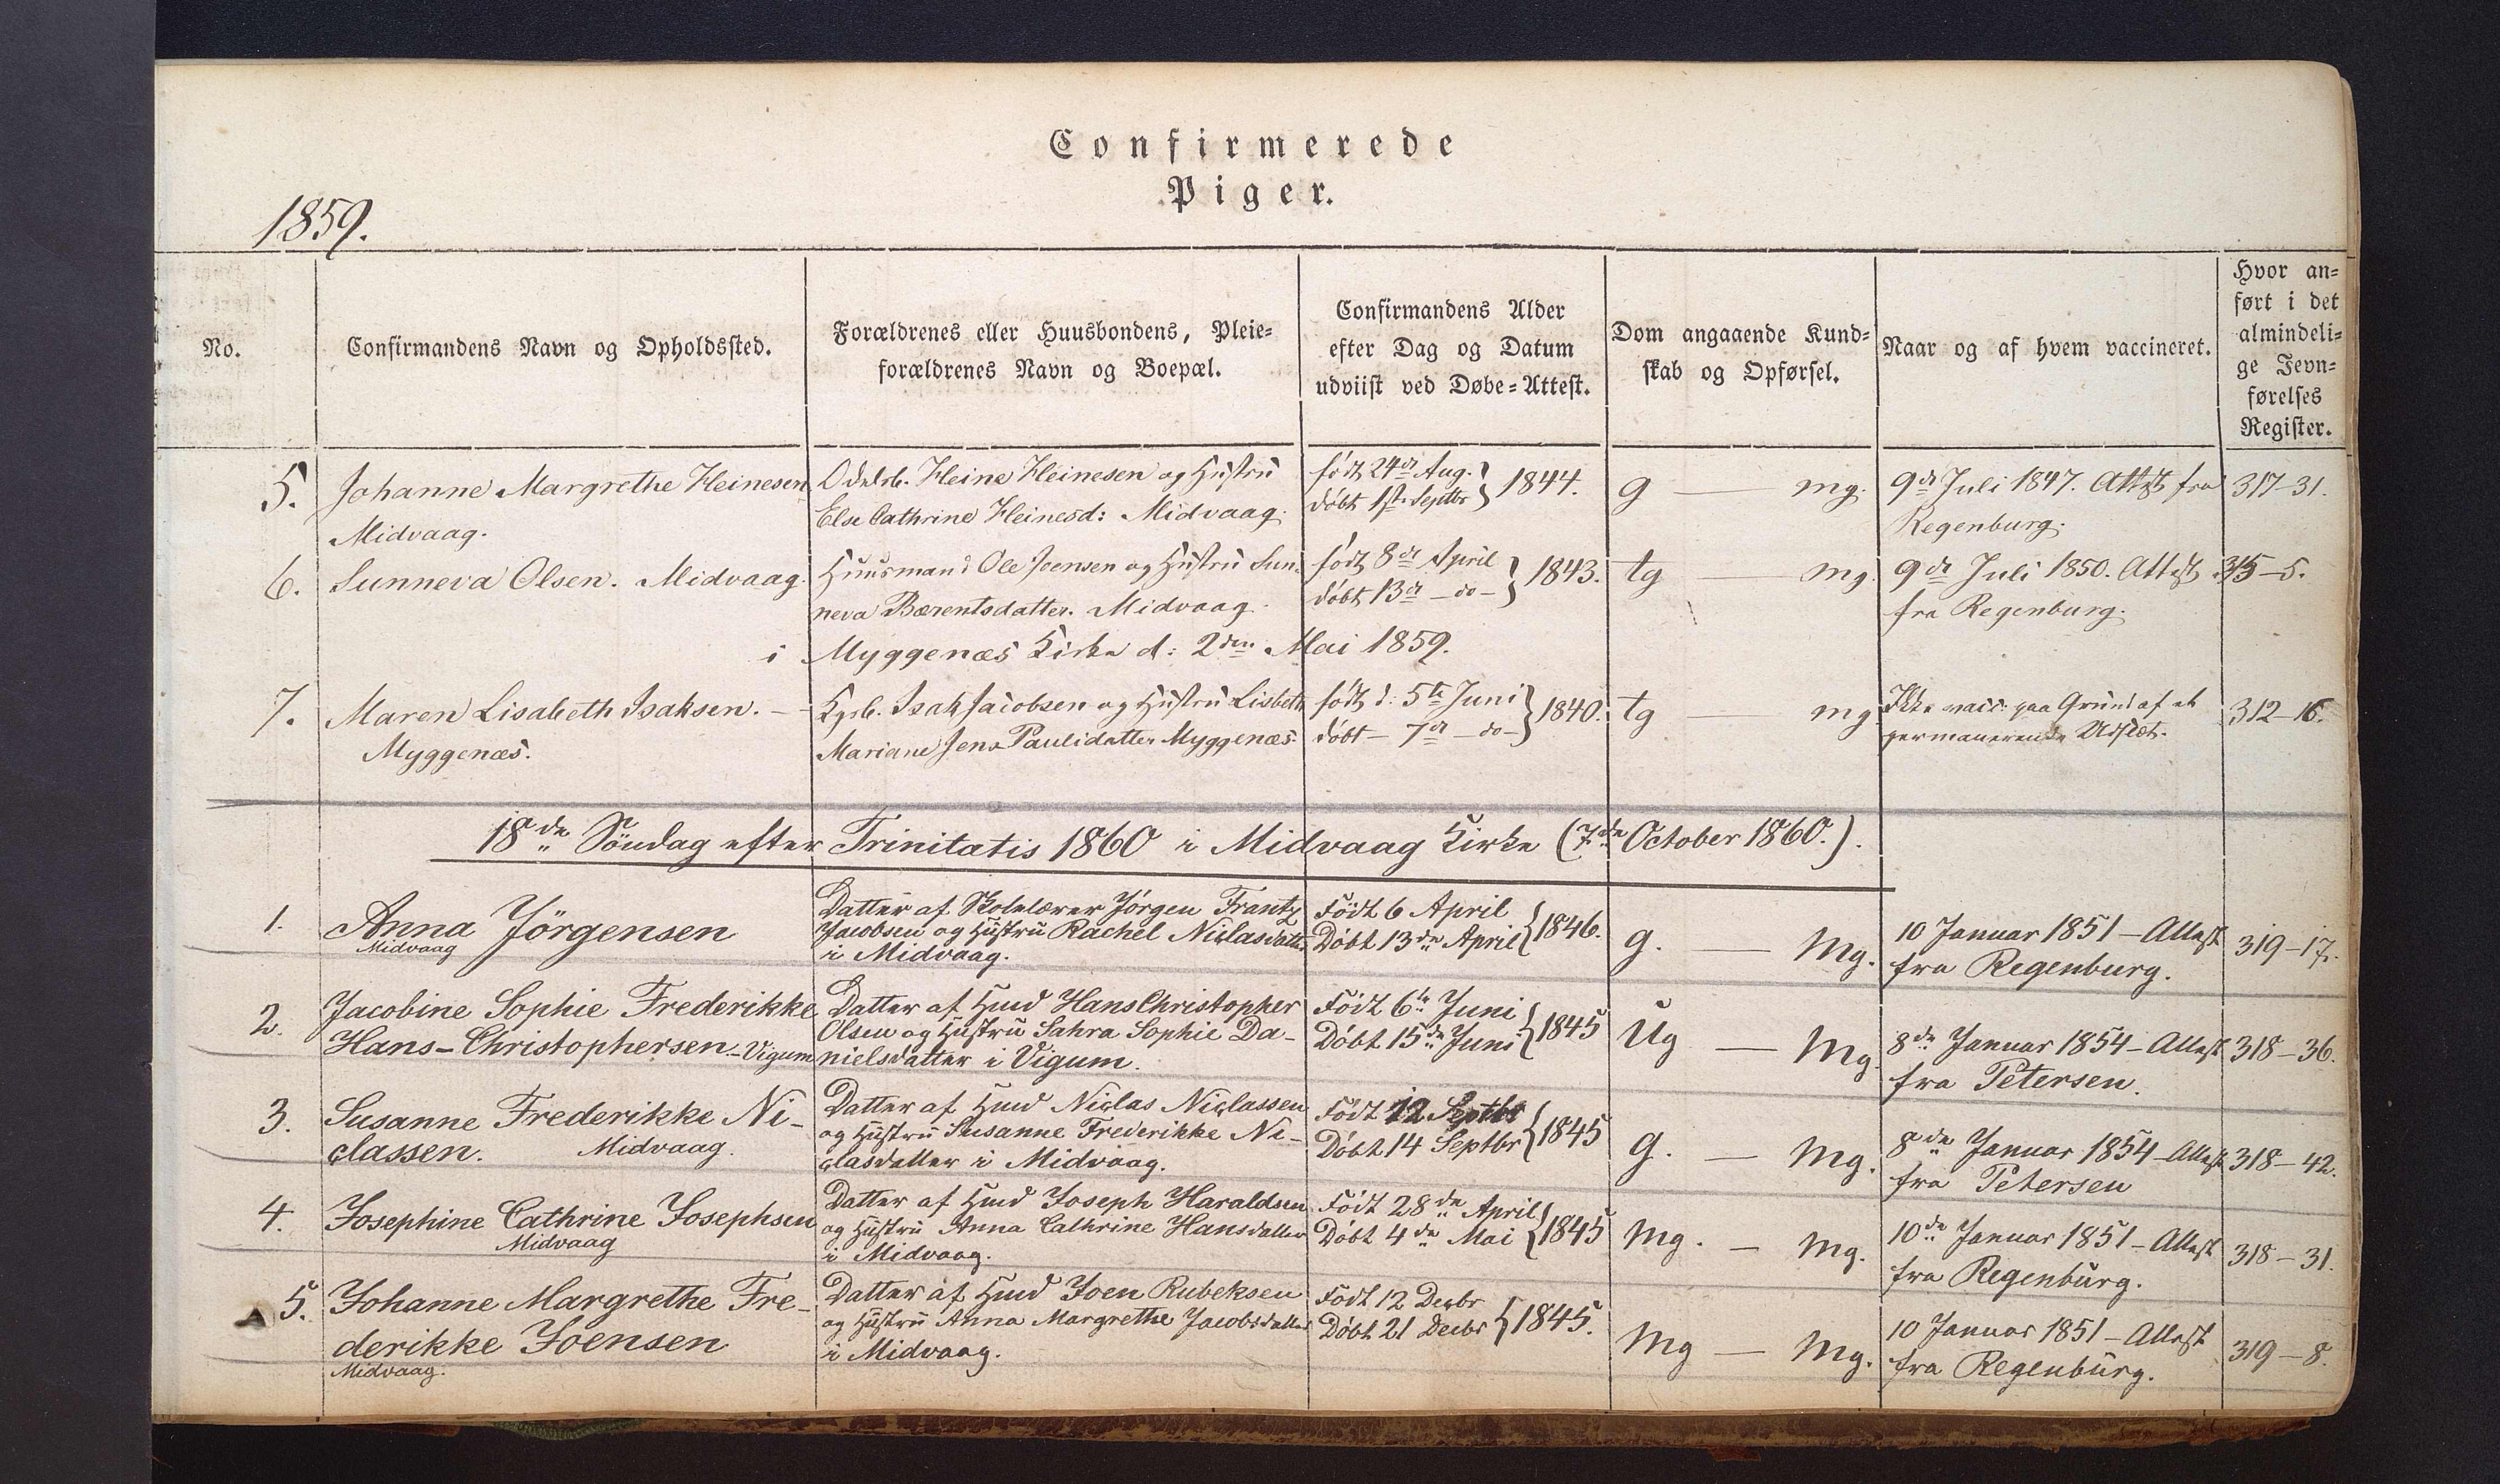 Confirmerede
Piger.
1859.
No.
Confirmandens Navn og Opholdssted.
Forældrenes eller Huusbondens, Pleie=
forældrenes Navn og Boepæl.
Confirmandens Alder
efter Dag og Datum
udviist ved Døbe=Attest.
Dom angaaende Kund=
skab og Opførsel.
Naar og af hvem vaccineret.
Hvor an=
ført i det
almindeli=
ge Jevn=
førelses
Register.
5. Johanne Margrethe Heinesen
Midvaag.
Odelsb. Heine Heinesen og Hustru
Else Cathrine Heinesd: Midvaag.
født 24de Aug.
døbt 1ste Septbr } 1844.
g — mg.
9de Juli 1847. Attest fra
Regenburg.
317-31.
6. Sunneva Olsen. Midvaag.
Huusmand Ole Joensen og Hustru Sun-
neva Bærentsdatter. Midvaag.
født 8de April
døbt 13de — do — } 1843.
tg — mg.
9de Juli 1850. Attest
fra Regenburg.
315-5.
i Myggenæs Kirke d: 2den Mai 1859.
7. Maren Lisabeth Isaksen. —
Myggenæs.
Kgsb. Isak Jacobsen og Hustru Lisbeth
Mariane Jens Paulidatter Myggenæs.
født d: 5te Juni
døbt — 7de — do — } 1840.
tg — mg
Ikke vacc: paa Grund af et
permanerende Udslæt.
312-16.
18de Söndag efter Trinitatis 1860 i Midvaag Kirke (7de October 1860.).
1. Anna Jörgensen
Midvaag
Datter af Skolelærer Jörgen Frantz
Jacobsen og Hustru Rachel Niclasdatter
i Midvaag.
Födt 6 April
Döbt 13de April } 1846.
g. — Mg.
10 Januar 1851 — Attest
fra Regenburg.
319-17.
2. Jacobine Sophie Frederikke
Hans-Christophersen - Vigum
Datter af Hmd Hans Christopher
Olsen og Hustru Sahra Sophie Da-
nielsdatter i Vigum.
Födt 6te Juni
Döbt 15de Juni } 1845
Ug — Mg.
8de Januar 1854 — Attest
fra Petersen.
318-36.
3. Susanne Frederikke Ni-
classen. Midvaag.
Datter af Hmd Niclas Niclassen
og Hustru Susanne Frederikke Ni-
clasdatter i Midvaag.
Födt 12 Septbr
Döbt 14 Septbr } 1845
g. — Mg.
8de Januar 1854 - Attest
fra Petersen
318-42.
4. Josephine Cathrine Josephsen
Midvaag
Datter af Hmd Joseph Haraldsen
og Hustru Anna Cathrine Hansdatter
i Midvaag.
Födt 28de April
Döbt 4de Mai } 1845
Mg. — Mg.
10de Januar 1851 — Attest
fra Regenburg.
318-31.
5. Johanne Margrethe Fre-
derikke Joensen
Midvaag.
Datter af Hmd Joen Rubeksen
og Hustru Anna Margrethe Jacobsdatter
i Midvaag.
Födt 12 Decbr
Döbt 21 Decbr } 1845.
Mg — Mg.
10 Januar 1851 — Attest
fra Regenburg.
319-8.